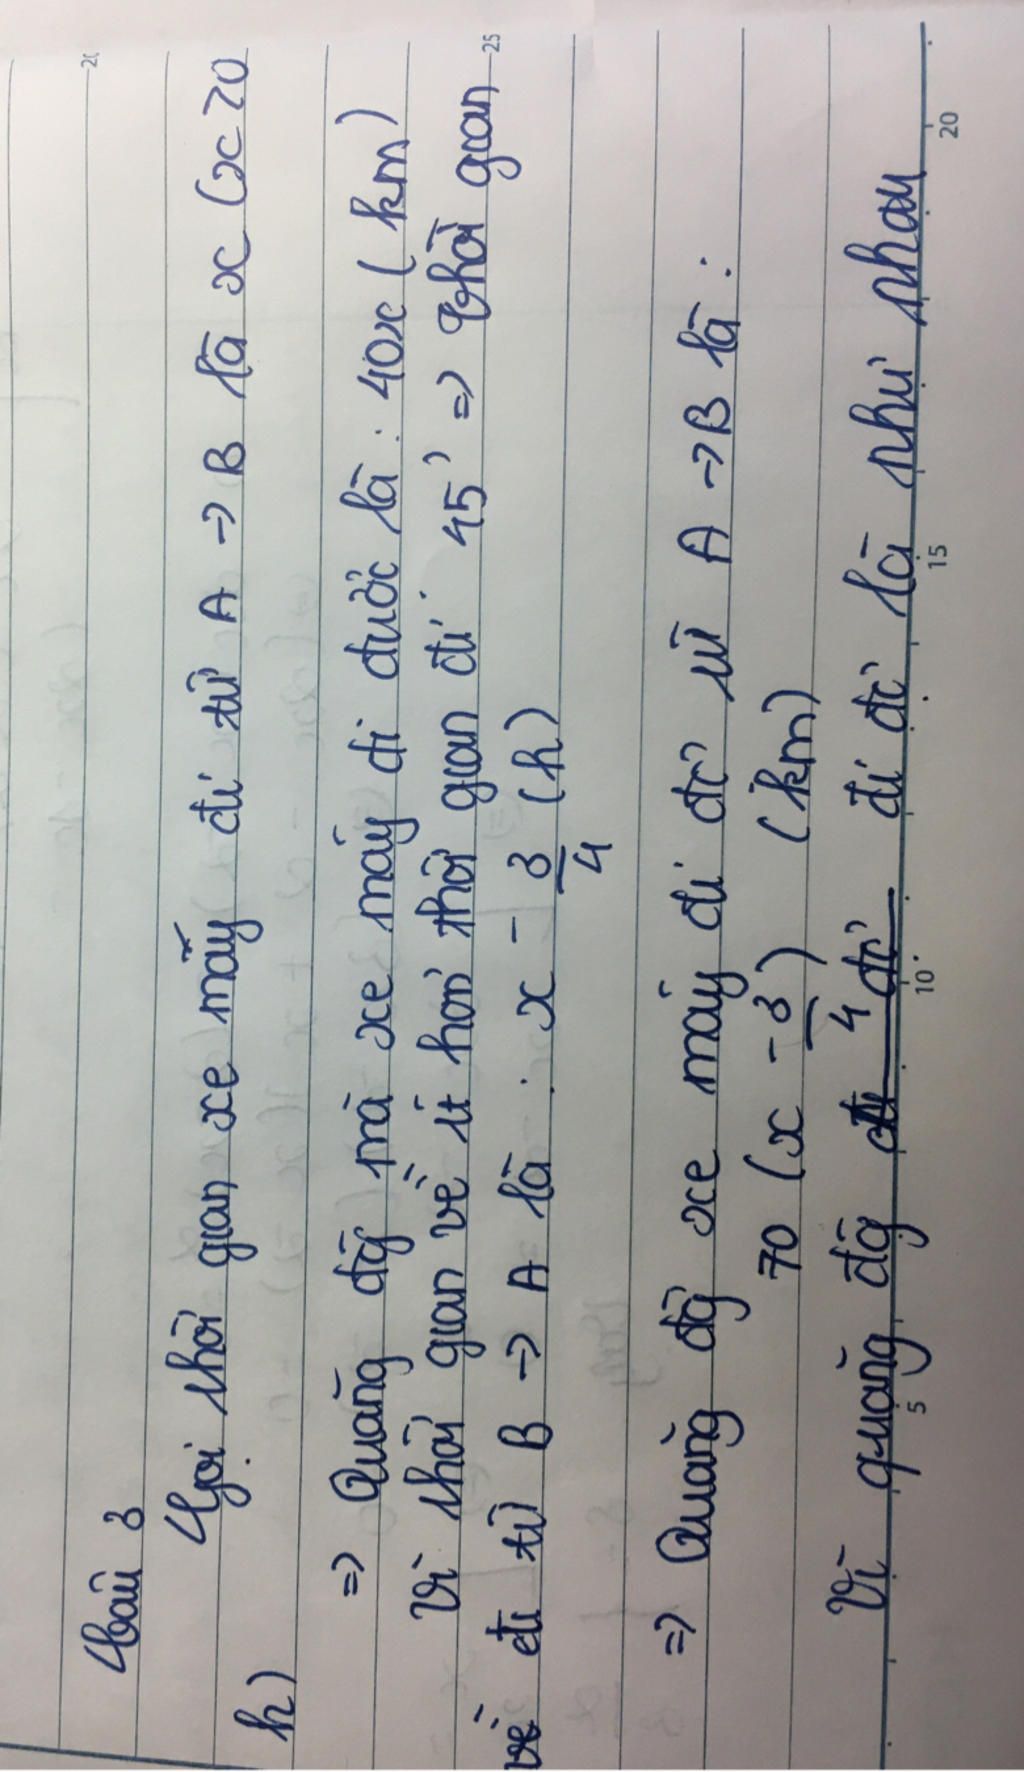 Câu 3
Gọi thời gian xe máy đi từ A → B là x (x > 0
h)
=> Quãng đg mà xe máy đi được là : 40x ( km )
Vì thời gian về ít hơn thời gian đi 45' => thời gian
về đi từ B → A là : x - 3/4 (h)
=> Quãng đg xe máy đi đc từ A → B là :
70 (x - 3/4) (km)
Vì quãng đg đi đc đi đc là như nhau
5 10 15 20 25